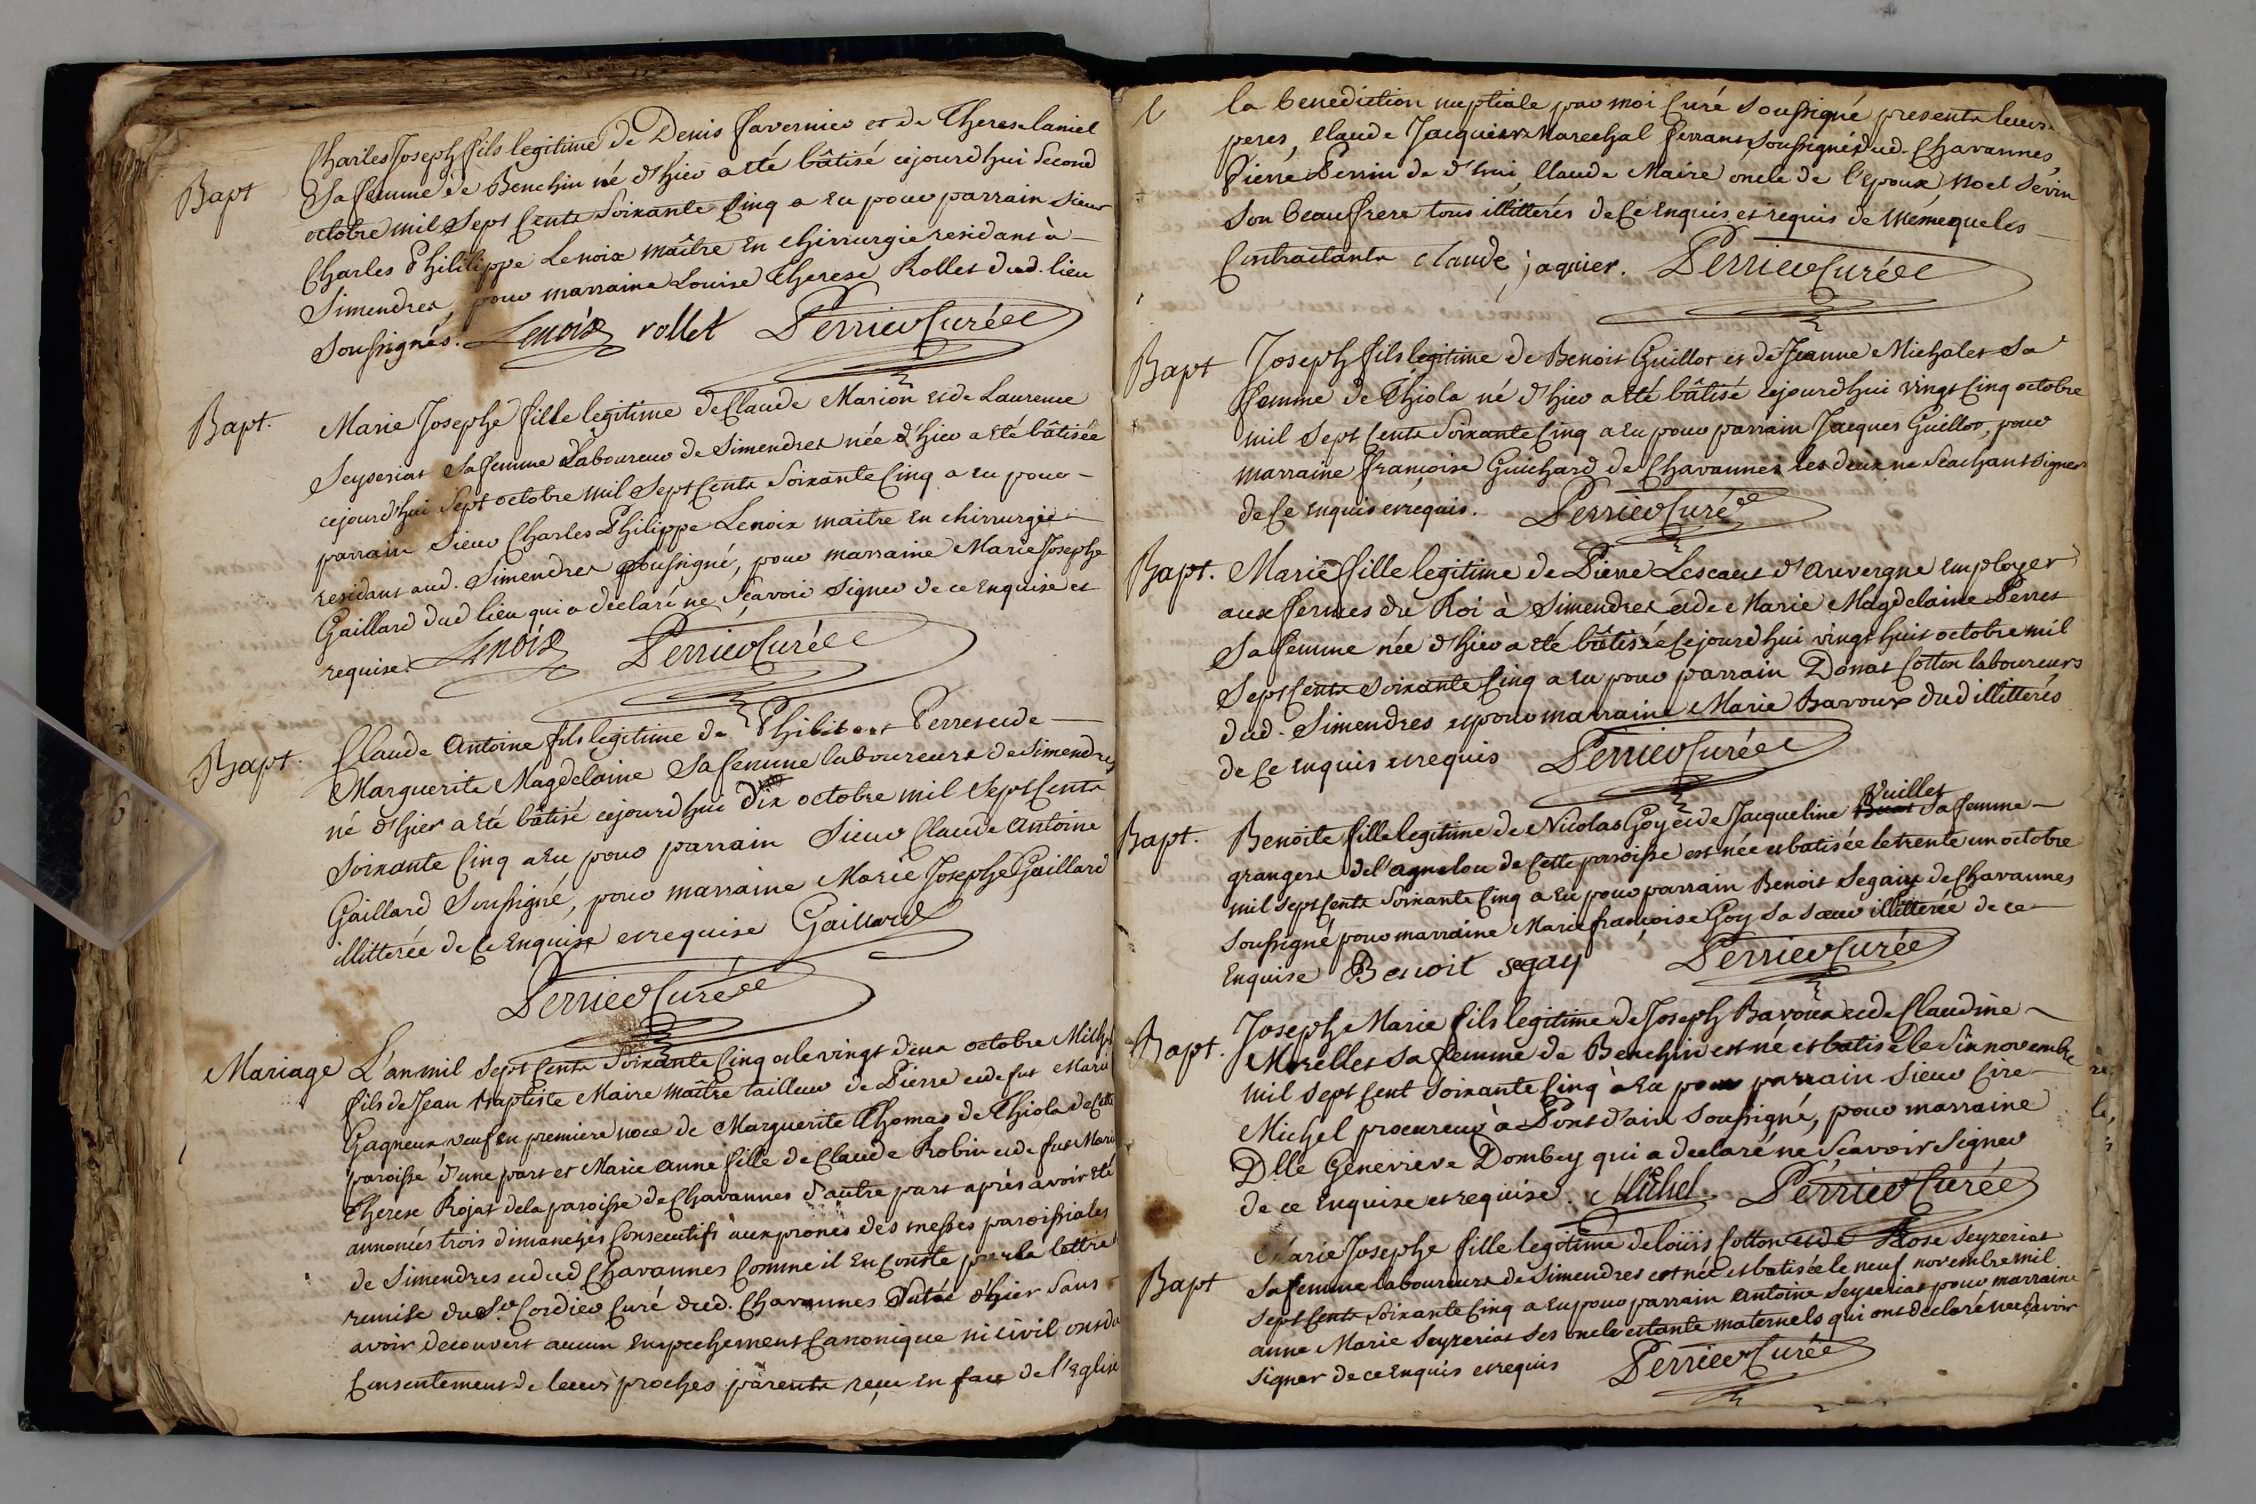 Bapt
Charles Joseph fils legitime de Denis favernier et de Therese laniel
Sa femme de Benchin né d'hier a été bâtisé cejourd'hui Second
octobre mil Sept Cents Soixante Cinq a Eu pour parrain Sieur
Charles Phililippe Lenoix maître En chirrurgie residant à
Simendres, pour marraine Louise Therese Rollet dud. lieu
Soussignés. Lenoix rollet Perrier Curé
Bapt.
Marie Josephe fille legitime de Claude Marion et de Laurence
Seyseriat Sa femme Laboureur de Simendres née d'hier a été bâtisée
cejourd'hui Sept octobre mil Sept Cents Soixante Cinq a Eu pour
parrain Sieur Charles Philippe Lenoix maitre En chirrurgie
residant aud. Simendres Soussigné, pour marraine Marie Josephe
Gaillard dud lieu qui a declaré ne Sçavoir Signer de ce Enquise et
requise Lenoix Perrier Curé
Bapt.
Claude Antoine fils legitime de Philibert Perret et de
Marguerite Magdelaine Sa femme laboureurs de Simendres
né d'hier a été bâtisé cejourd'hui dix octobre mil Sept Cents
Soixante Cinq a Eu pour parrain Sieur Claude Antoine
Gaillard Soussigné, pour marraine Marie Josephe Gaillard
illitterée de Ce Enquise et requise Gaillard
Perrier Curé
Mariage
L'an mil Sept Cents Soixante Cinq et le vingt deux octobre
fils de Jean Baptiste Maire maître tailleur de Pierre et de fut Marie
Gagneux veuf En premiere noce de Marguerite Thomas de Thiola de Cette
paroisse d'une part et Marie Anne fille de Claude Robin et de fut Marie
Therese Rojat de la paroisse de Chavannes d'autre part après avoir été
annoncés trois dimanches Consecutifs aux prones des messes paroissiales
de Simendres et dud Chavannes Comme il En Conste par la lettre
remise du Sr. Cordier Curé dud. Chavannes Datée d'hier Sans
avoir decouvert aucun Empechement Canonique ni Civil ont du
Consentement de leurs proches parents reçu En face de l'Eglise
la benediction nuptiale par moi Curé Soussigné presents leurs
peres, Claude Jacquier Marechal ferrant Soussigné dud. Chavannes,
Pierre Perrin de d'hui, Claude Maire oncle de l'Epoux, Noel Sevin
Son beaufrere tous illitterés de Ce Enquis et requis de même que les
Contractants claude jaquier. Perrier Curé
Bapt
Joseph fils legitime de Benoit Guillot et de Jeanne Michalet Sa
femme de Thiola né d'hier a été bâtisé cejourd'hui vingt Cinq octobre
mil Sept Cents Soixante Cinq a Eu pour parrain Jacques Guillot, pour
marraine françoise Guichard de Chavannes les deux ne Scachant Signer
de Ce Enquis et requis. Perrier Curé
Bapt.
Marie fille legitime de Pierre Lescaut d'Auvergne Employer
aux fermes du Roi à Simendres et de Marie Magdelaine Perret
Sa femme née d'hier a été bâtisée Cejourd'hui vingt huit octobre mil
Sept Cents Soixante Cinq a Eu pour parrain Donat Cotton laboureurs
dud. Simendres et pour marraine Marie Bavoux dud illitterés
de Ce Enquis et requis Perrier Curé
Bapt.
Vuillet
Benoite fille legitime de Nicolas Goy et de Jacqueline Sa femme
grangers de l'agnelou de Cette paroisse est née et batisée le trente un octobre
mil Sept Cents Soixante Cinq a Eu pour parrain Benoit Segaiy de Chavannes
Soussigné pour marraine Marie françoise Goy Sa Sœur illitterée de ce
Enquise Benoit segay Perrier Curé
Bapt.
Joseph Marie fils legitime de Joseph Bavoux et de Claudine
Morellet Sa femme de Benchin est né et batisé le Six novembre
mil Sept Cent Soixante Cinq a Eu pour parrain Sieur Cire
Michel procureur à Pont d'ain Soussigné, pour marraine
Dlle Genevieve Dombey qui a declaré ne Sçavoir Signer
de ce Enquise et requise. Michel Perrier Curé
Bapt
Marie Josephe fille legitime de loüis Cotton et de Rose Seyzeriat
Sa femme laboureurs de Simendres est née et batisée le neuf novembre mil
Sept Cents Soixante Cinq a Eu pour parrain Antoine Seyseriat pour marraine
anne Marie Seyzeriat Ses oncle et tante maternels qui ont declaré ne Sçavoir
Signer de ce Enquis et requis Perrier Curé